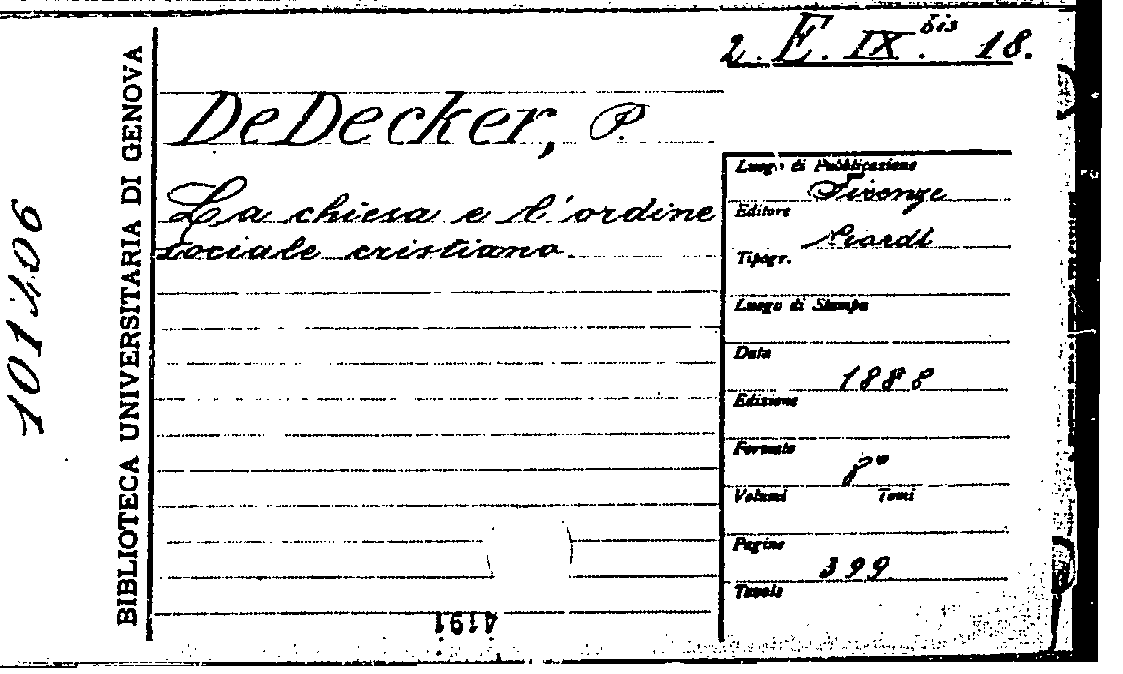 2. E. IX.bis 18.
De Decker, P.
La chiesa e l'ordine
sociale cristiano.
Luogo di Pubblicazione
Firenze
Editore
Ricardi
Tipogr.
Luogo di Stampa
Data
1888
Edizione
Formato
8°
Volumi Tomi
Pagine
399
Tavole
BIBLIOTECA UNIVERSITARIA DI GENOVA
4191